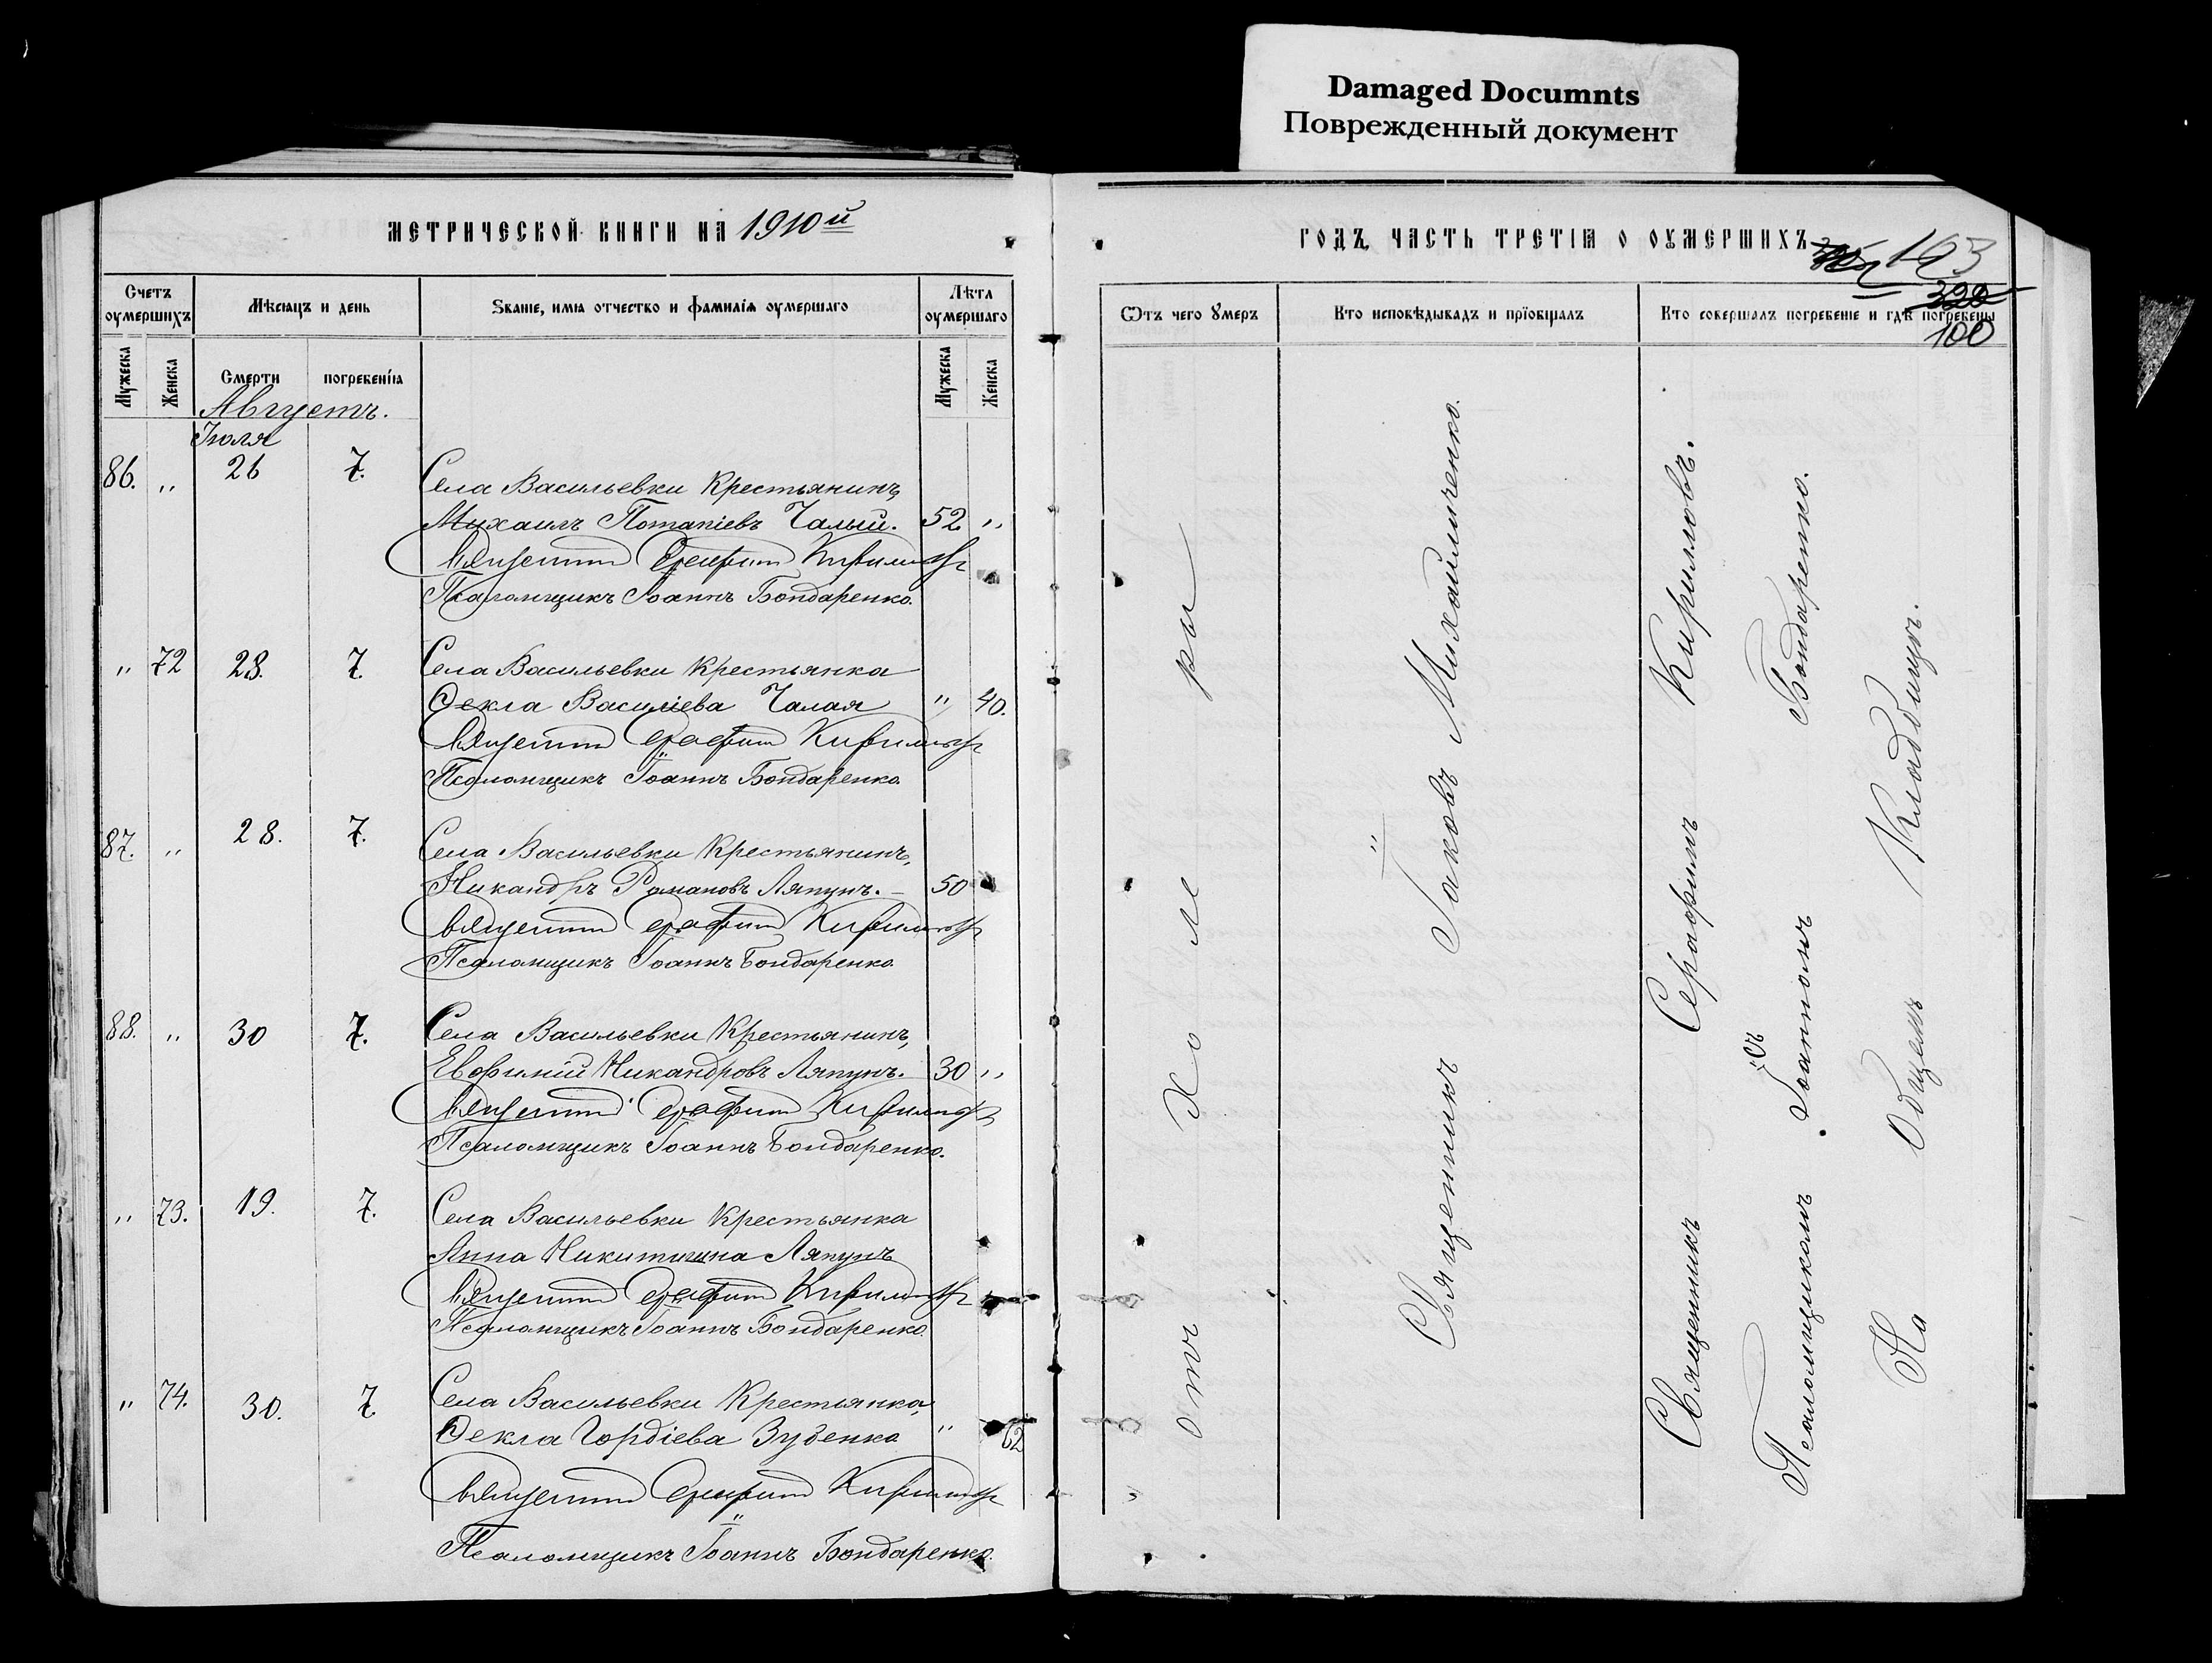 Damaged Documnts
Поврежденный документ
МЕТРИЧЕСКОЙ КНИГИ НА 1910й
Счетъ оумершихъ
Мѣсяцъ и день
Званіе, имя отчество и фамилія оумершаго
Лѣта оумершаго
Мужеска
Женска
Смерти
погребенія
Мужеска
Женска
Августъ.
Іюля
86. „ 26 7. Села Васильевки крестьянинъ,
Михаилъ Потапіевъ Чалый. 52 „
Священникъ Серафимъ Кирилловъ
Псаломщикъ Іоаннъ Бондаренко.
„ 72 28. 7. Села Васильевки крестьянка
Ѳекла Василіева Чалая „ 40.
Священникъ Серафимъ Кирилловъ
Псаломщикъ Іоаннъ Бондаренко
87. „ 28. 7. Села Васильевки крестьянинъ,
Никандръ Романовъ Ляпунъ. 50
Священникъ Серафимъ Кирилловъ
Псаломщикъ Іоаннъ Бондаренко
88. „ 30 7. Села Васильевки крестьянинъ,
Евѳимій Никандровъ Ляпунъ. 30 „
Священникъ Серафимъ Кирилловъ
Псаломщикъ Іоаннъ Бондаренко.
„ 73. 19. 7. Села Васильевки крестьянка
Анна Никитишна Ляпунъ
Священникъ Серафимъ Кирилловъ
Псаломщикъ Іоаннъ Бондаренко
„ 74. 30. 7. Села Васильевки крестьянка,
Ѳекла Гордіева Зубенко „ 62
Священникъ Серафимъ Кирилловъ
Псаломщикъ Іоаннъ Бондаренко.
ГОДЪ, ЧАСТЬ ТРЕТІЯ О ОУМЕРШИХЪ
163
322
100
Ѿтъ чего ꙋмеръ
Кто исповѣдывалъ и пріобщалъ
Кто совершалъ погребеніе и гдѣ погребены
отъ холеры
Священникъ Іаковъ Михайличенко.
Священникъ Серафимъ Кирилловъ.
съ
Псаломщикомъ Іоанномъ Бондаренко.
На Общемъ Кладбищѣ.